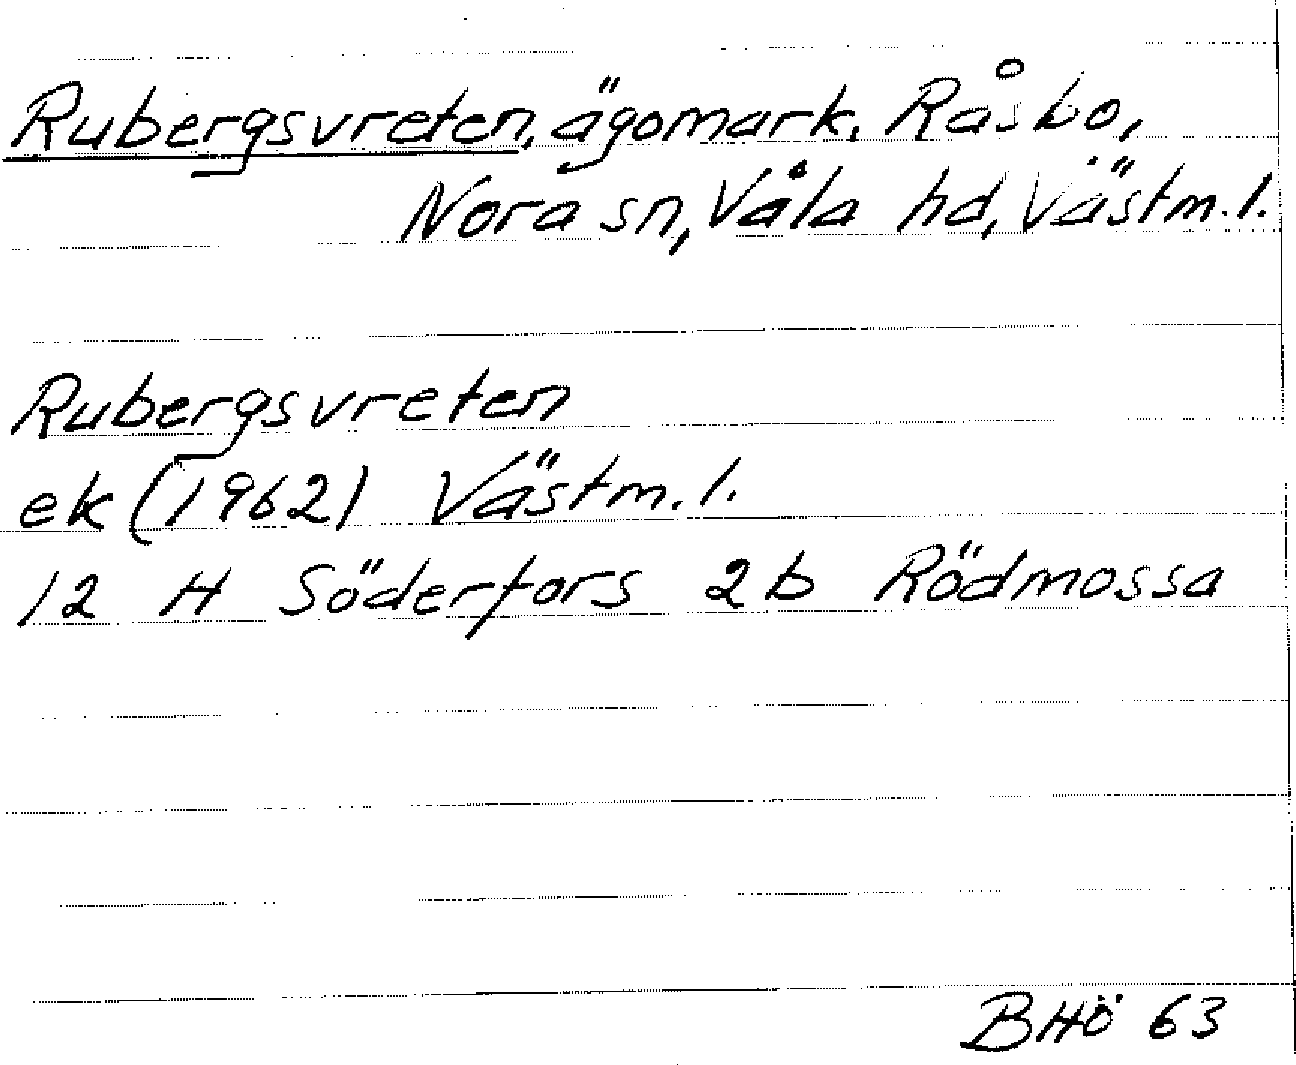 Rubergsvreten, ägomark, Råsbo,
Nora sn, Våla hd, Västm. l.
Rubergsvreten
ek (1962) Västm. l.
12 H Söderfors 2b Rödmossa
BHö 63